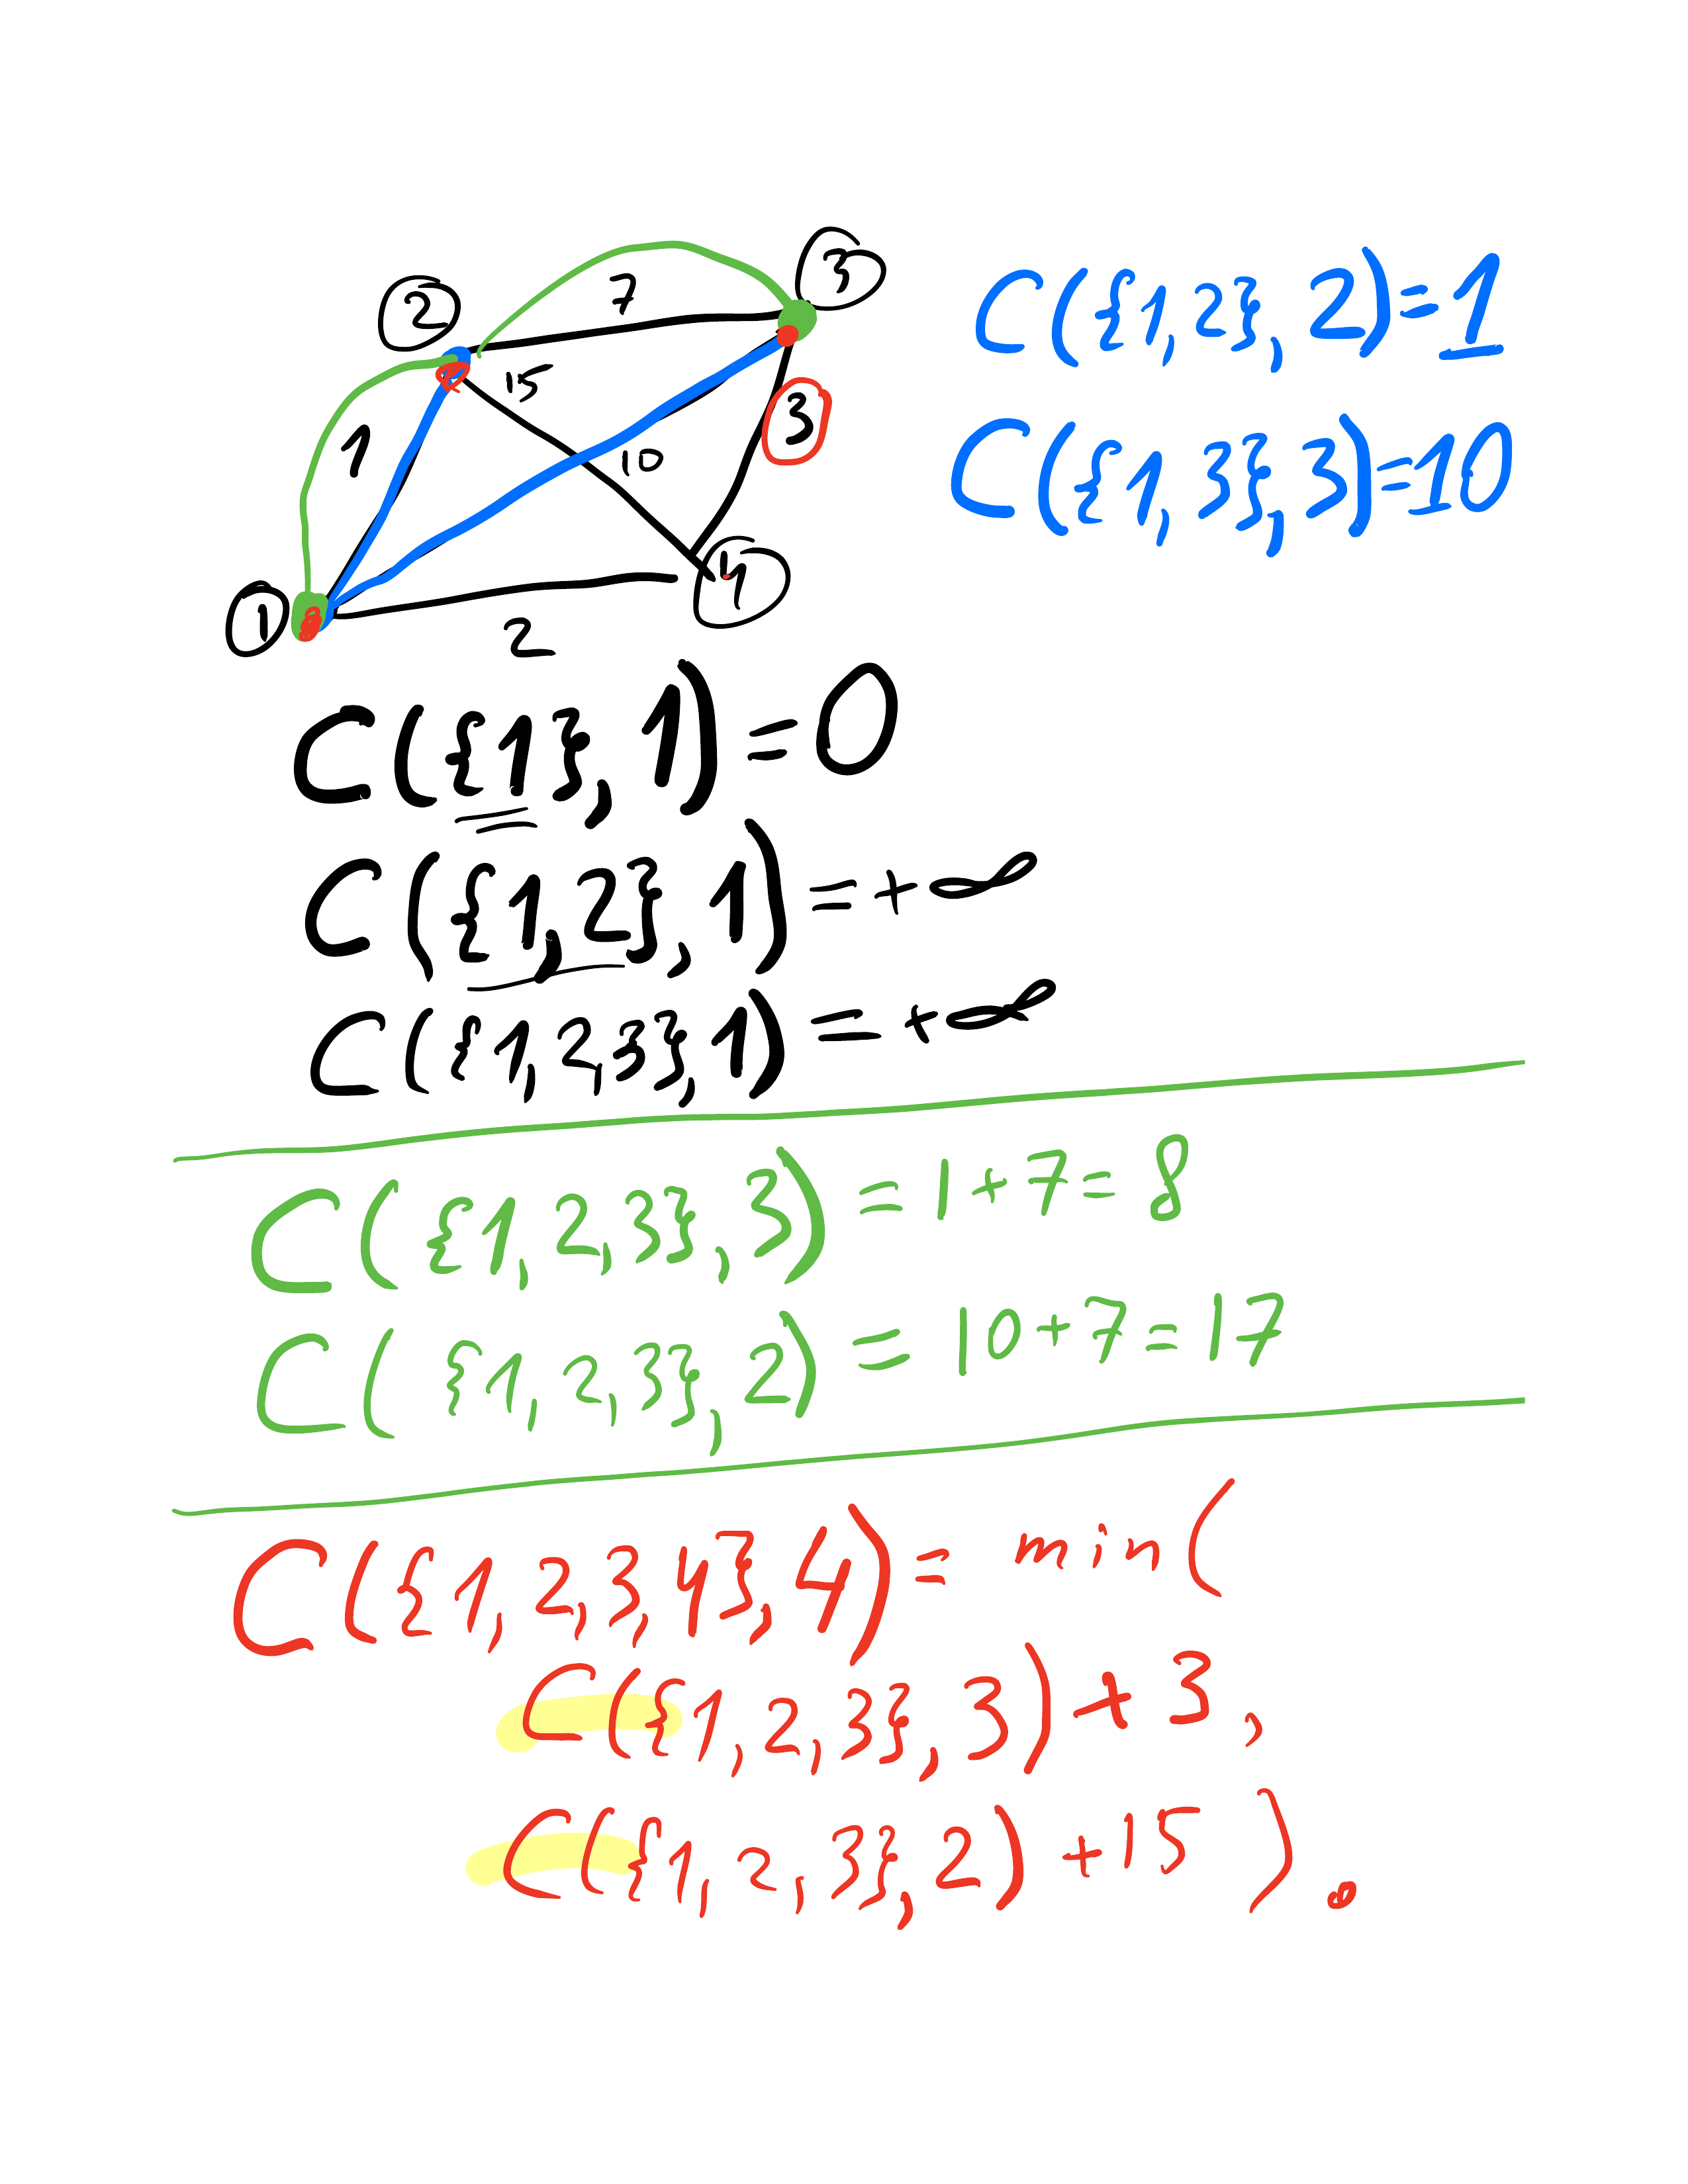 3
2
7
15
1
10
3
4
1
2
C({1,2},2)=1
C({1,3},3)=10
C({1},1)=0
C({1,2},1)=+∞
C({1,2,3},1)=+∞
C({1,2,3},3)=1+7=8
C({1,2,3},2)=10+7=17
C({1,2,3,4},4)=min(
C({1,2,3},3)+3,
C({1,2,3},2)+15).